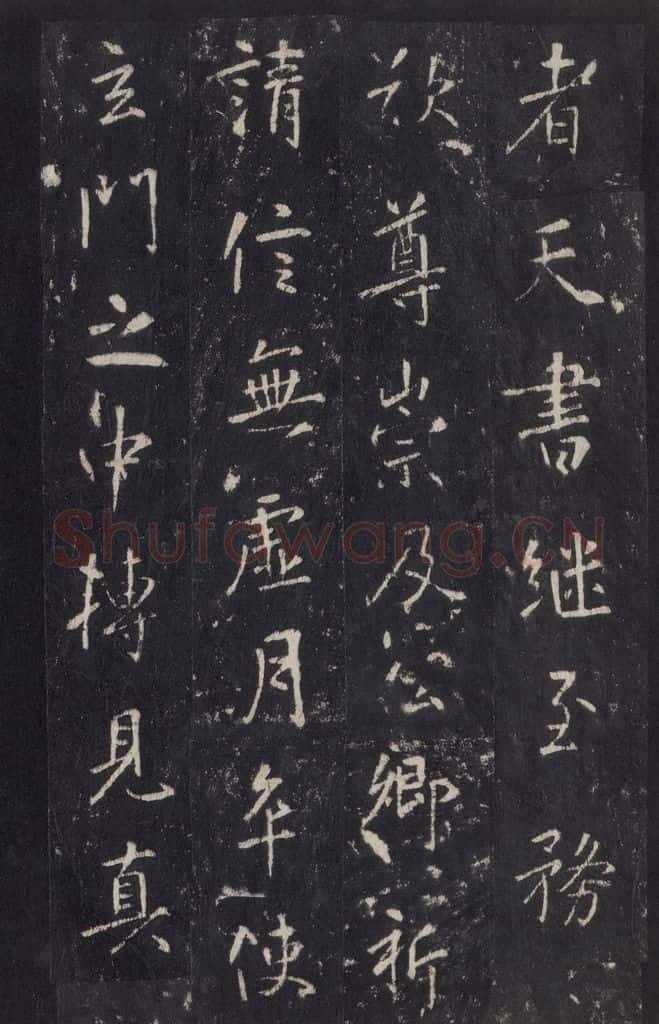 者天書継至務
欲尊崇及公卿祈
請信無虛月年使
玄門之中轉見真
Shufawang.CN